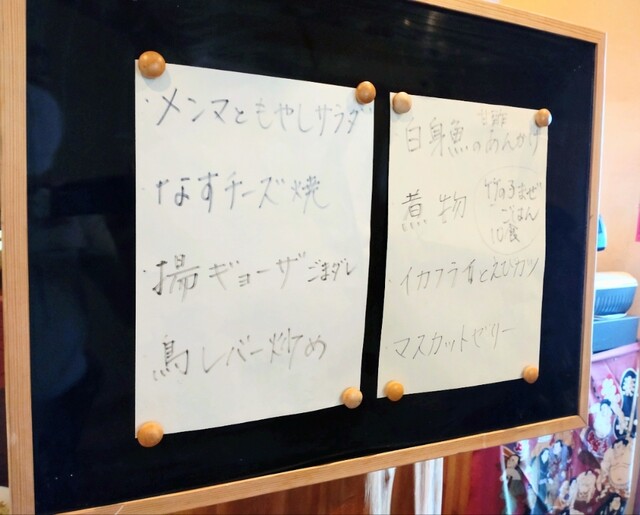 ・メンマともやしサラダ
・なすチーズ焼
・揚ギョーザ ごまダレ
・鳥レバー炒め
・白身魚のあんかけ
・煮物
竹の子まぜ
ごはん
・イカフライとえびカツ
・マスカットゼリー